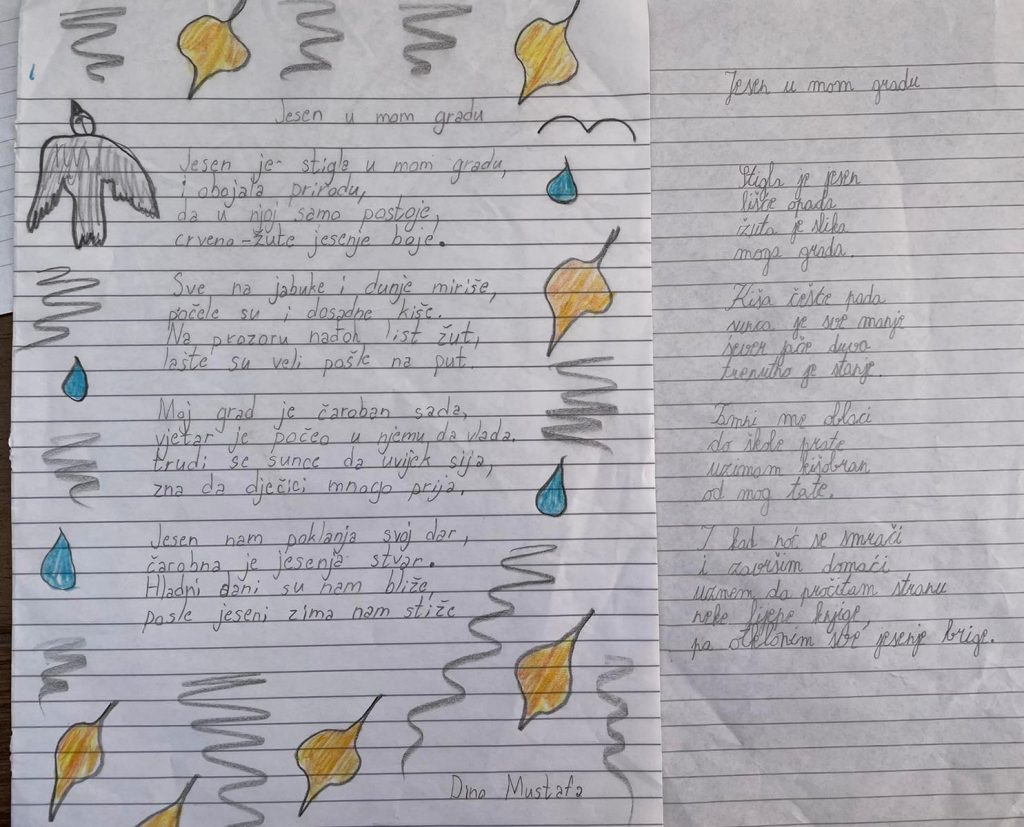 Jesen u mom gradu
Jesen je stigla u mom gradu,
i obojala prirodu,
da u njoj samo postoje,
crveno-žute jesenje boje.
Sve na jabuke i dunje miriše,
počele su i dosadne kiše.
Na prozoru nađoh list žut,
laste su veli pošle na put.
Moj grad je čaroban sada,
vjetar je počeo u njemu da vlada.
trudi se sunce da uvijek sija,
zna da dječici mnogo prija.
Jesen nam poklanja svoj dar,
čarobna je jesenja stvar.
Hladni dani su nam bliže,
posle jeseni zima nam stiže
Dino Mustafa
Jesen u mom gradu
Stigla je jesen
lišće opada
žuta je slika
moga grada.
Kiša češće pada
sunca je sve manje
sever jače duva
trenutno je stanje.
Tmni me oblaci
do škole prate
uzimam kišobran
od mog tate.
I kad noć se smrači
i završim domaći
uzmem da pročitam stranu
neke lijepe knjige,
pa otklonim sve jesenje brige.